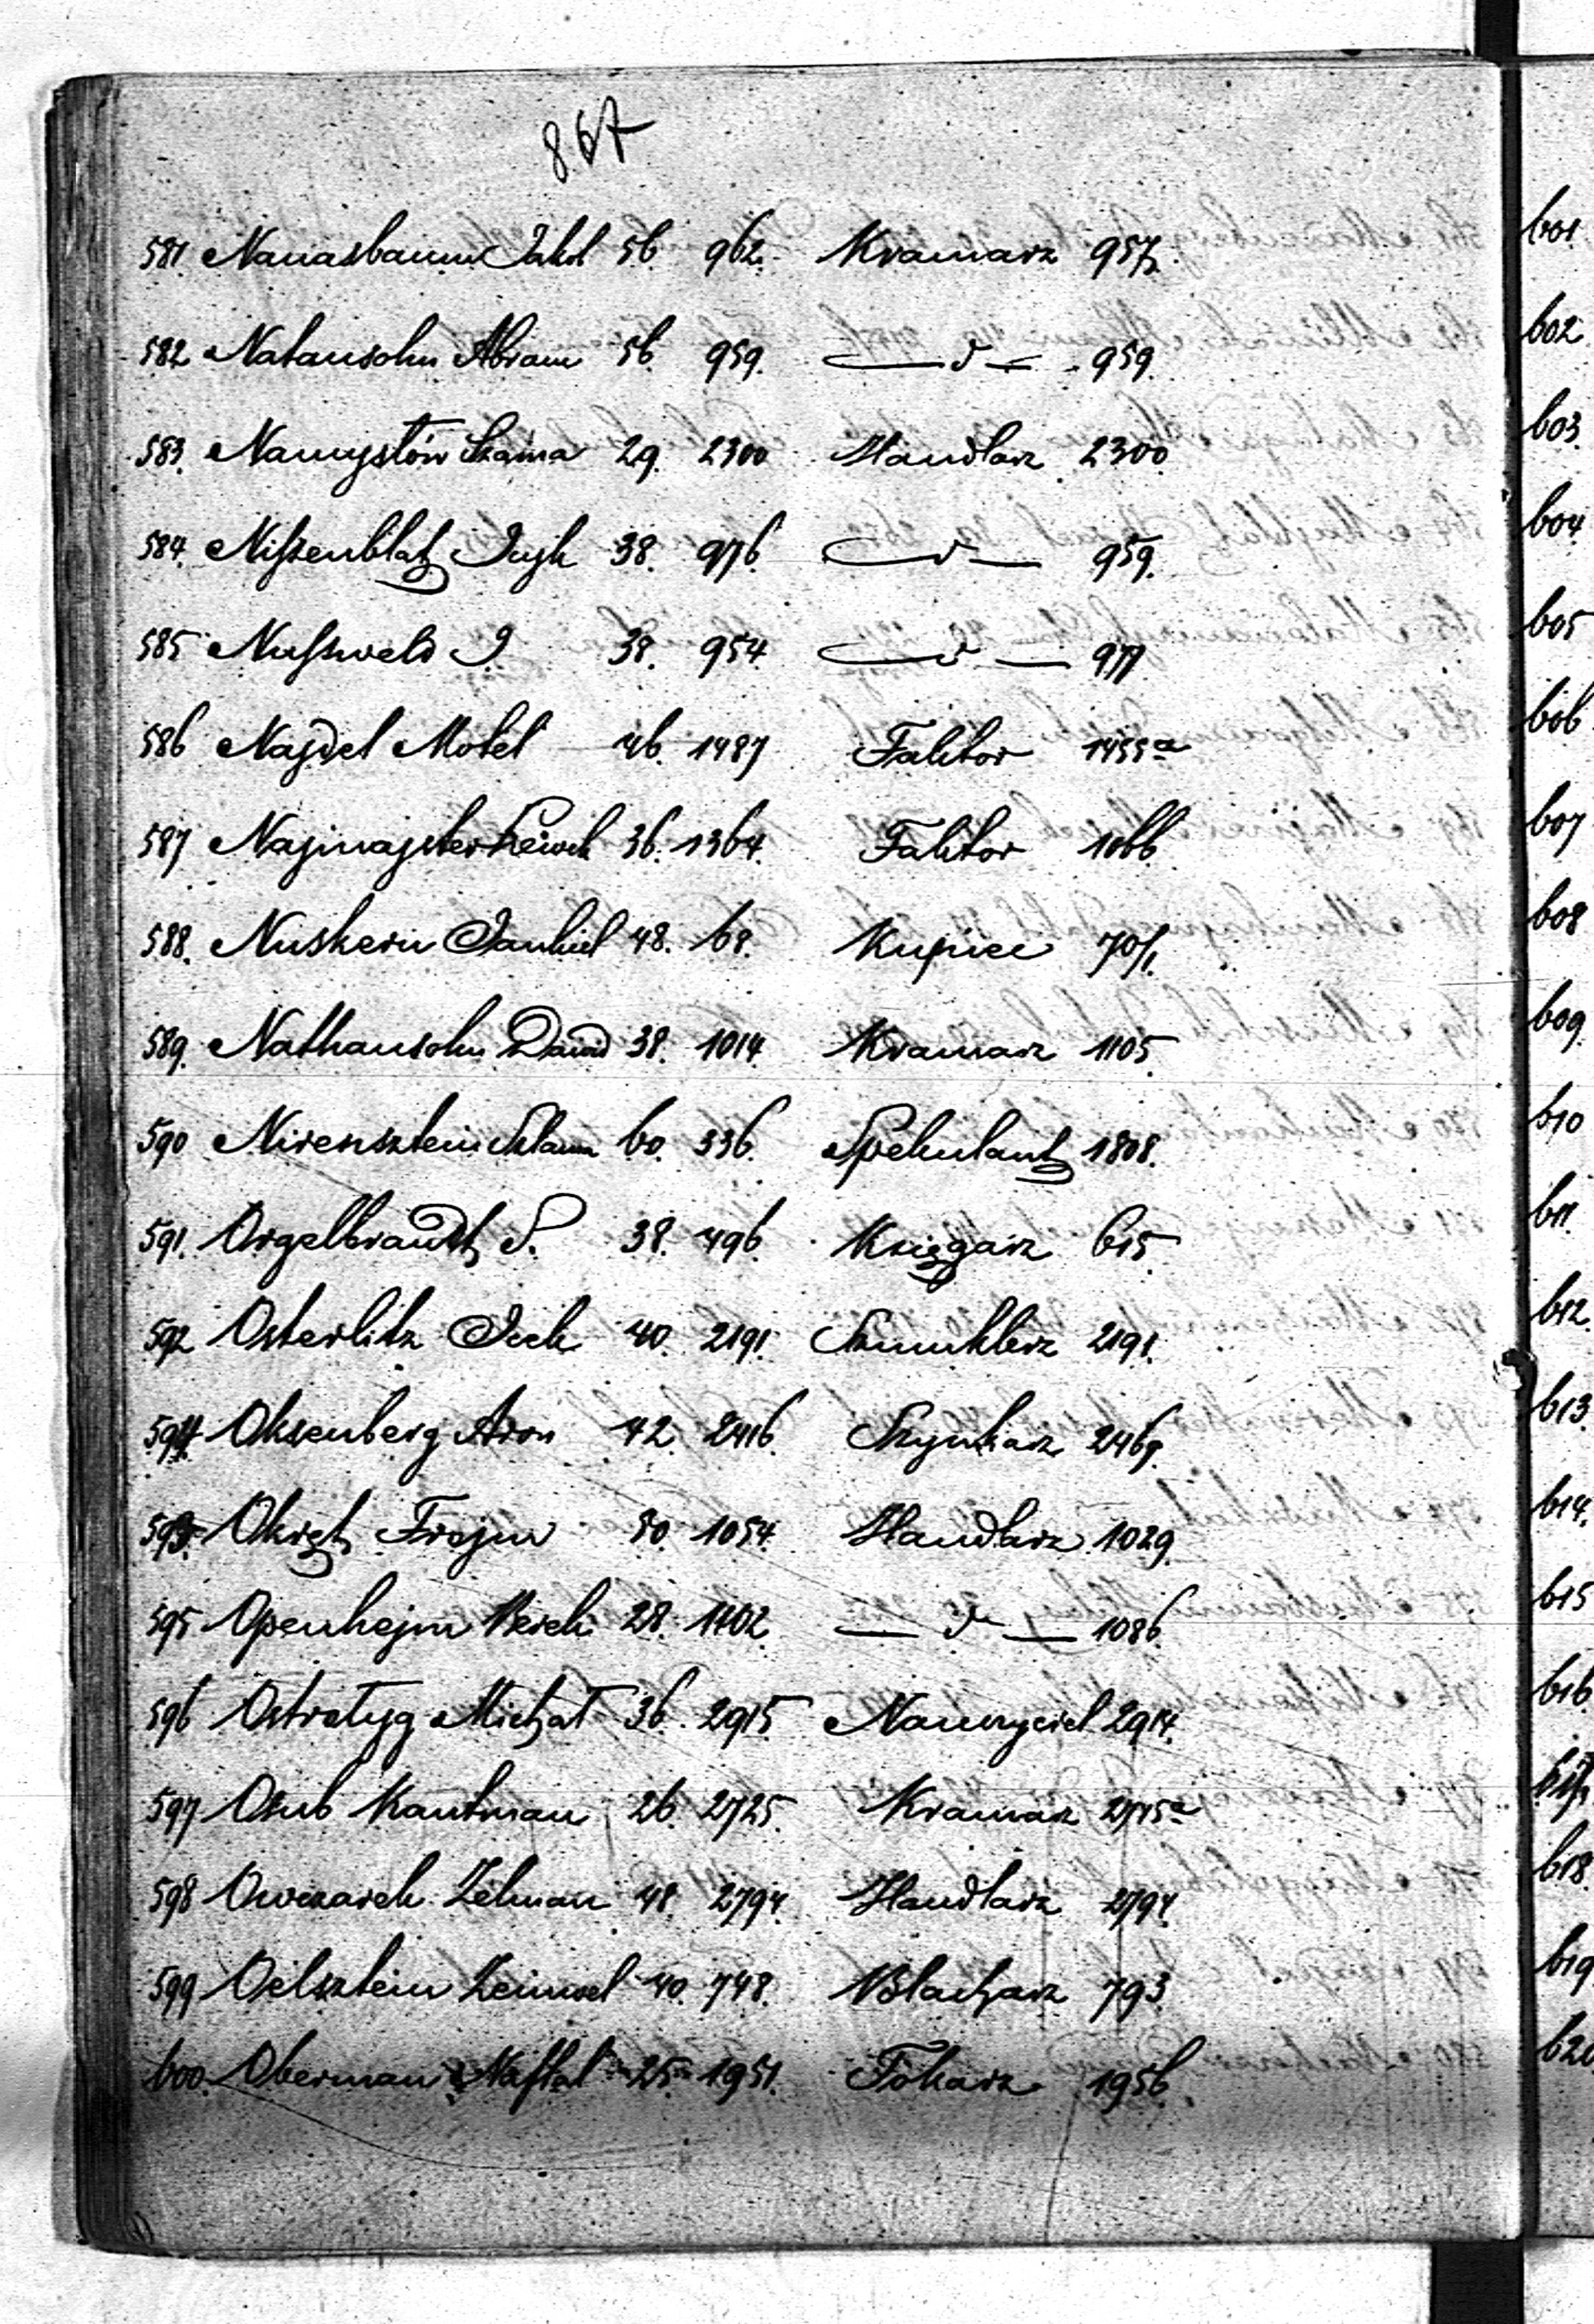 867
581. Nanasbaum Jakob 56. 962. Kramarz 957.
582 Natansohn Abram 56. 959. — d — 959.
583. Namysłów Szaina 29. 2300 Handlarz 2300
584. Nissenblat Icyk 38. 976. — d — 959.
585 Nussweld I 38. 954 — d — 977
586 Najdel Motel 46. 1487 Faktor 1455a
587 Najmajster 36. 1364. Faktor 1066.
588. Nuskern Jankiel 48. 68. Kupiec 70/1.
589. Nathansohn Dawid 38. 1014. Kramarz 1105
590 Nirensztein 60. 336. Spekulant 1808.
591. Orgelbrandt S. 38. 496. Księgarz 615
592 Osterlitz Icek 40. 2191. Szmuklerz 2191.
594 Oksenberg Aron 42. 2416. Szynkarz 2469.
593. Okręt Frojm 50. 1054. Handlarz 1029.
595 Openhejm Hersek 28. 1102. — d — 1086.
596 Ostrotyg Michał 36. 2915 Nauczyciel 2914.
597 Osub Kaufman 26. 2725. Kramarz 2715a
598 Owczarek Zelman 48. 2794. Handlarz 2794.
599 Oelsztein Zeinwel 40. 748. Blacharz 793
600. Oberman Naftal 25. 1951. Tokarz 1956.
601.
602
603.
604.
605
606.
607
608
609.
610
611.
612.
613
614.
615
616.
618.
619